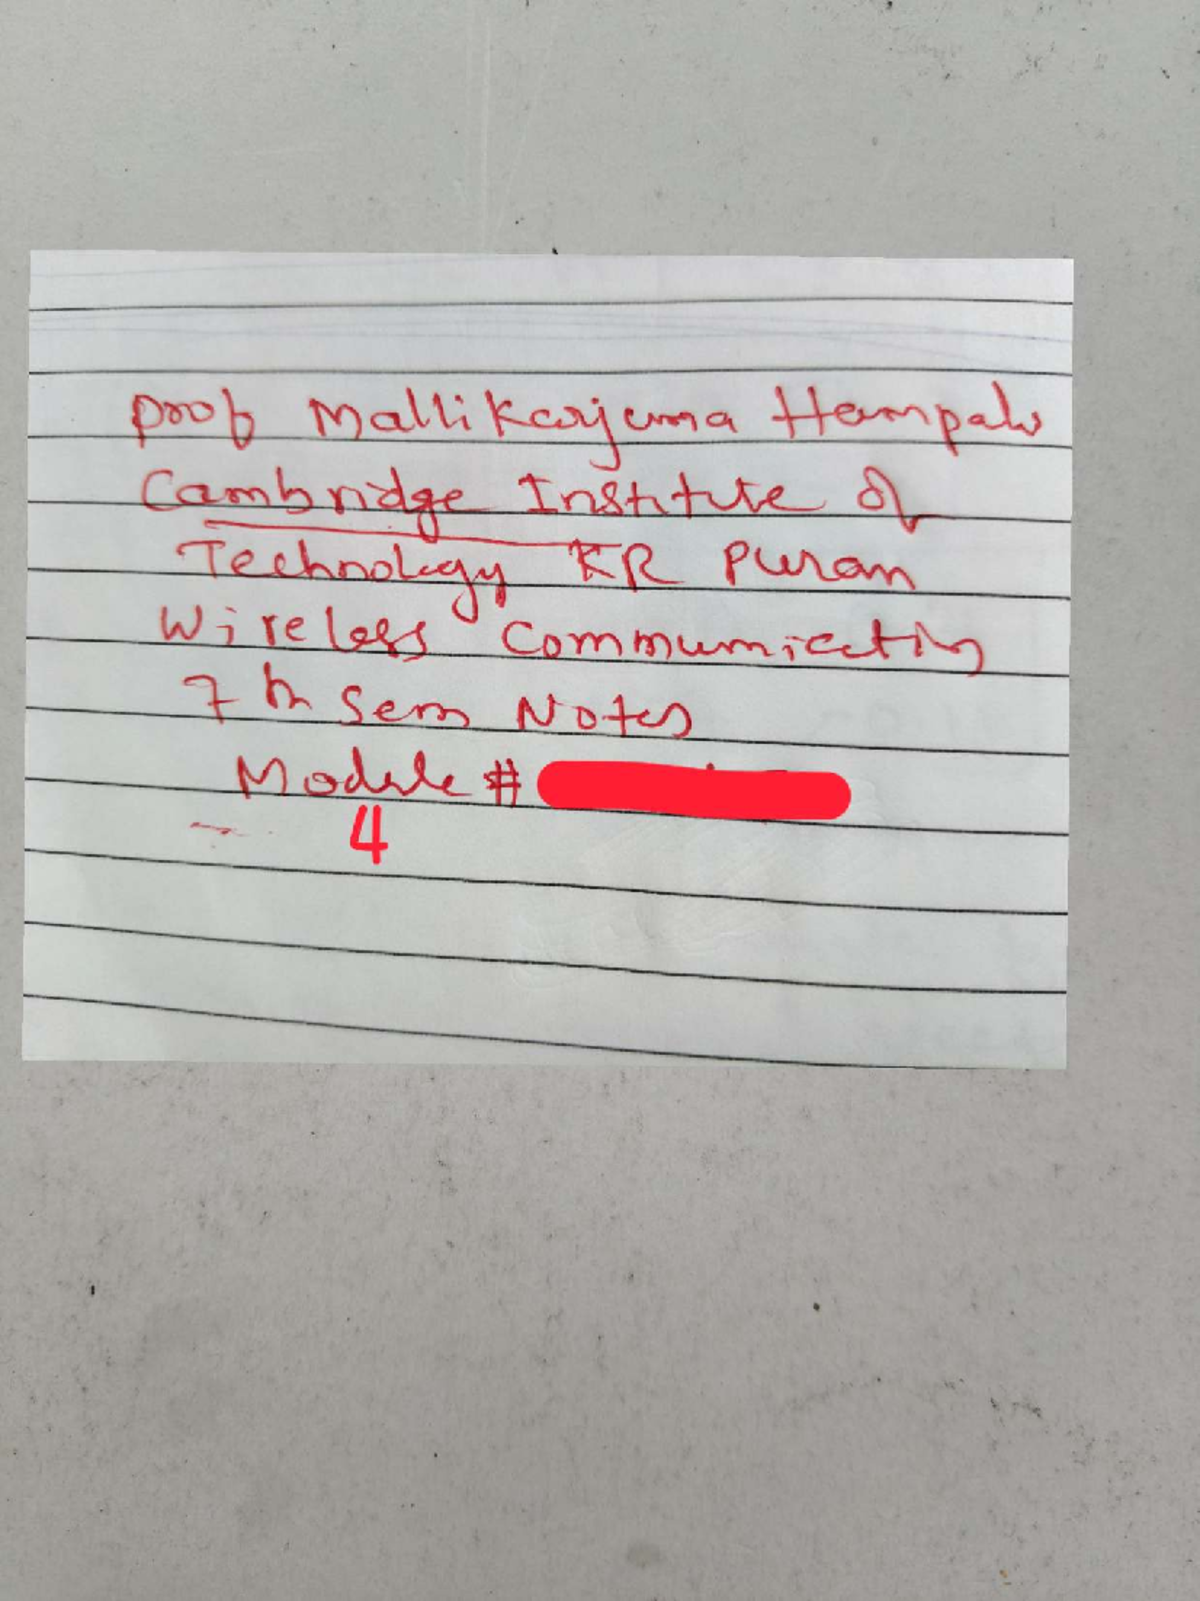 Prof Mallikarjuna Hampali
Cambridge Institute of
Technology KR Puram
Wireless Communication
7th Sem Notes
Module #
4